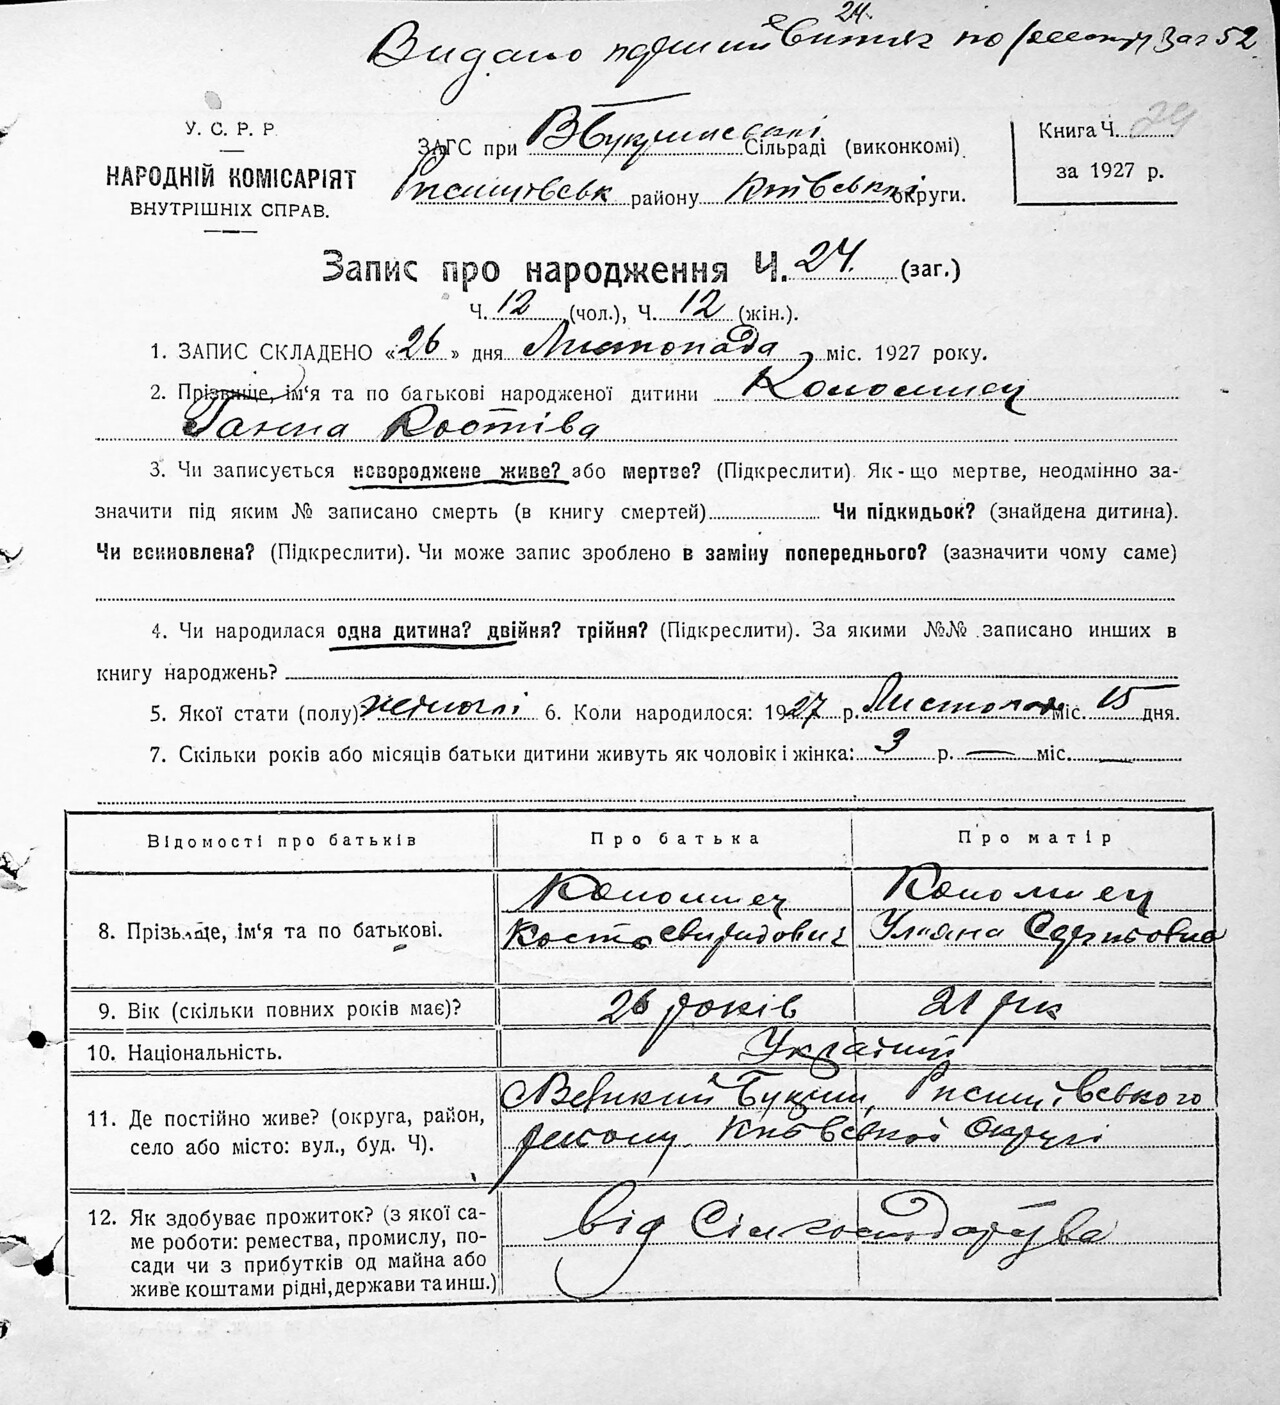 Видано перший витяг по реєстру Заг 52
24.
У. С. Р. Р.
НАРОДНІЙ КОМІСАРІЯТ
ВНУТРІШНІХ СПРАВ.
ЗАГС при В Букринській Сільраді (виконкомі)
Ржищівськ району Київської округи.
Книга Ч. 24
за 1927 р.
Запис про народження Ч. 24. (заг.)
Ч. 12 (чол.), Ч. 12 (жін.).
1. ЗАПИС СКЛАДЕНО «26» дня Листопада міс. 1927 року.
2. Прізвище, ім'я та по батькові народженої дитини Коломиец
Ганна Костіва
3. Чи записується новороджене живе? або мертве? (Підкреслити). Як-що мертве, неодмінно за-
значити під яким № записано смерть (в книгу смертей) Чи підкидьок? (знайдена дитина).
Чи всиновлена? (Підкреслити). Чи може запис зроблено в заміну попереднього? (зазначити чому саме)
4. Чи народилася одна дитина? двійня? трійня? (Підкреслити). За якими №№ записано инших в
книгу народжень?
5. Якої стати (полу)? жіночої 6. Коли народилося: 1927 р. Листопада міс. 15 дня.
7. Скільки років або місяців батьки дитини живуть як чоловік і жінка: 3 р. — міс. —
Відомості про батьків Про батька Про матір
8. Прізьвіще, ім'я та по батькові.
Коломиец Коломиец
Кость Свиридович Уляна
9. Вік (скільки повних років має)? 26 років 21 рік
10. Національність. Україн
11. Де постійно живе? (округа, район,
село або місто: вул., буд. Ч).
Великий Букрин, Ржищівського
району Київської Округи
12. Як здобуває прожиток? (з якої са-
ме роботи: ремества, промислу, по-
сади чи з прибутків од майна або
живе коштами рідні, держави та инш.)
від Сільгосподарства